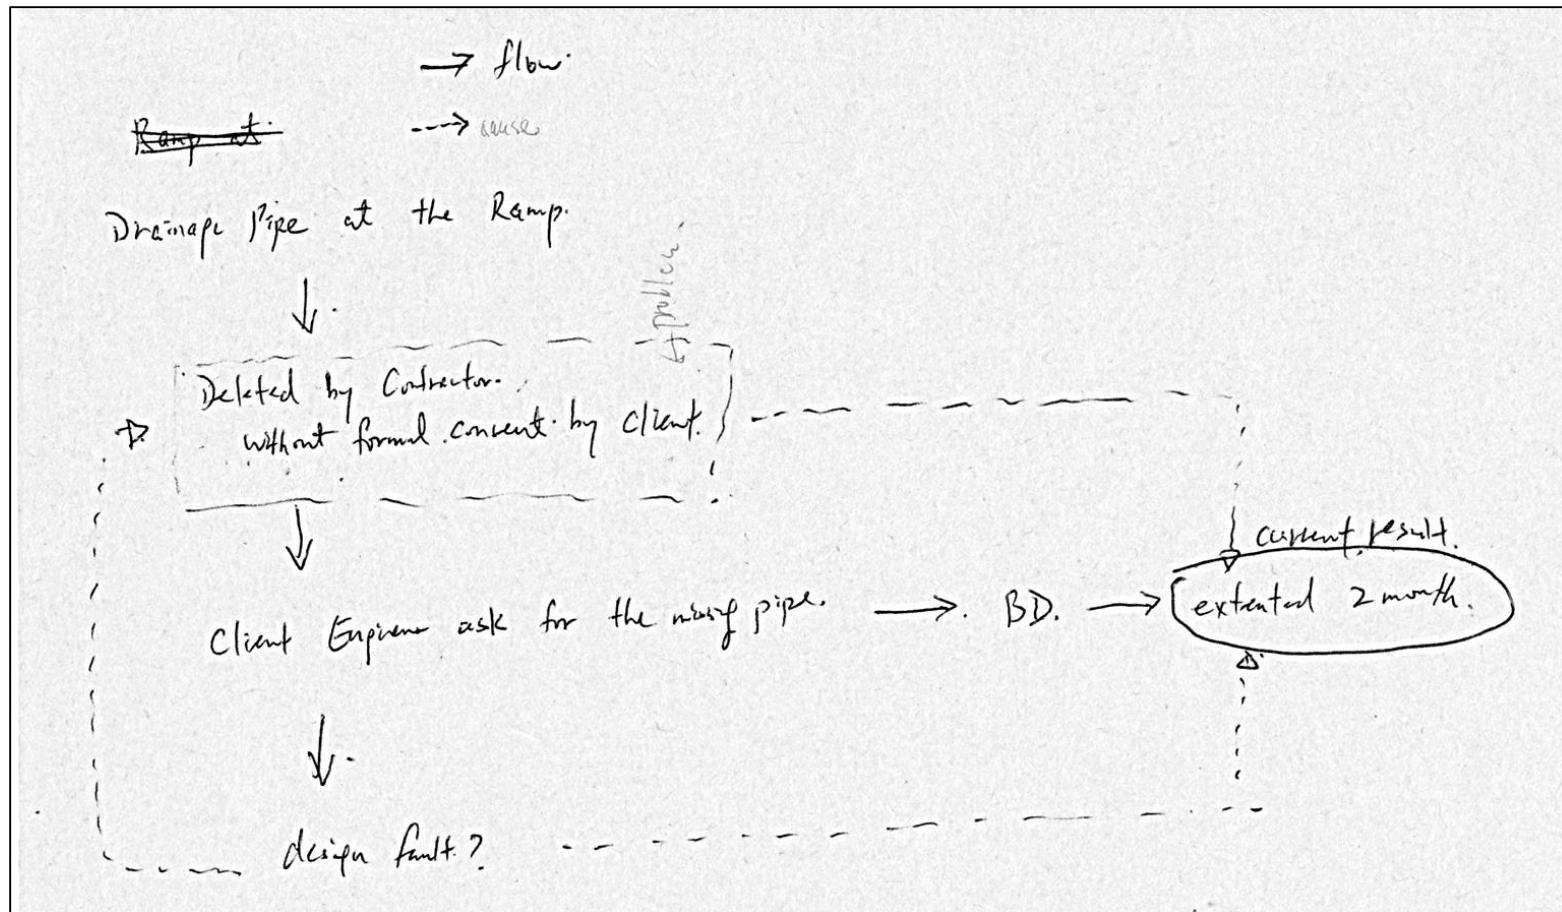 → flow.
Ramp at.
---> cause
Drainage Pipe at the Ramp.
problem.
Deleted by Contractor.
without formal consent by client.
current result.
Client Engineer ask for the missing pipe. → BD. → extented 2 month.
design fault?